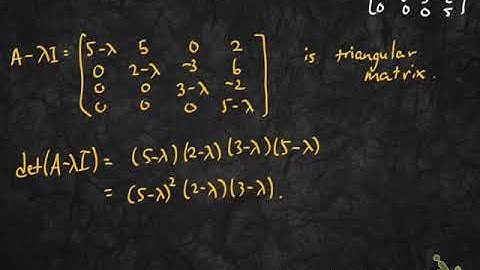 [0 0 0 5]
A-λI = [5-λ 5 0 2
0 2-λ -3 6
0 0 3-λ -2
0 0 0 5-λ] is triangular matrix.
det(A-λI) = (5-λ)(2-λ)(3-λ)(5-λ)
= (5-λ)² (2-λ)(3-λ).